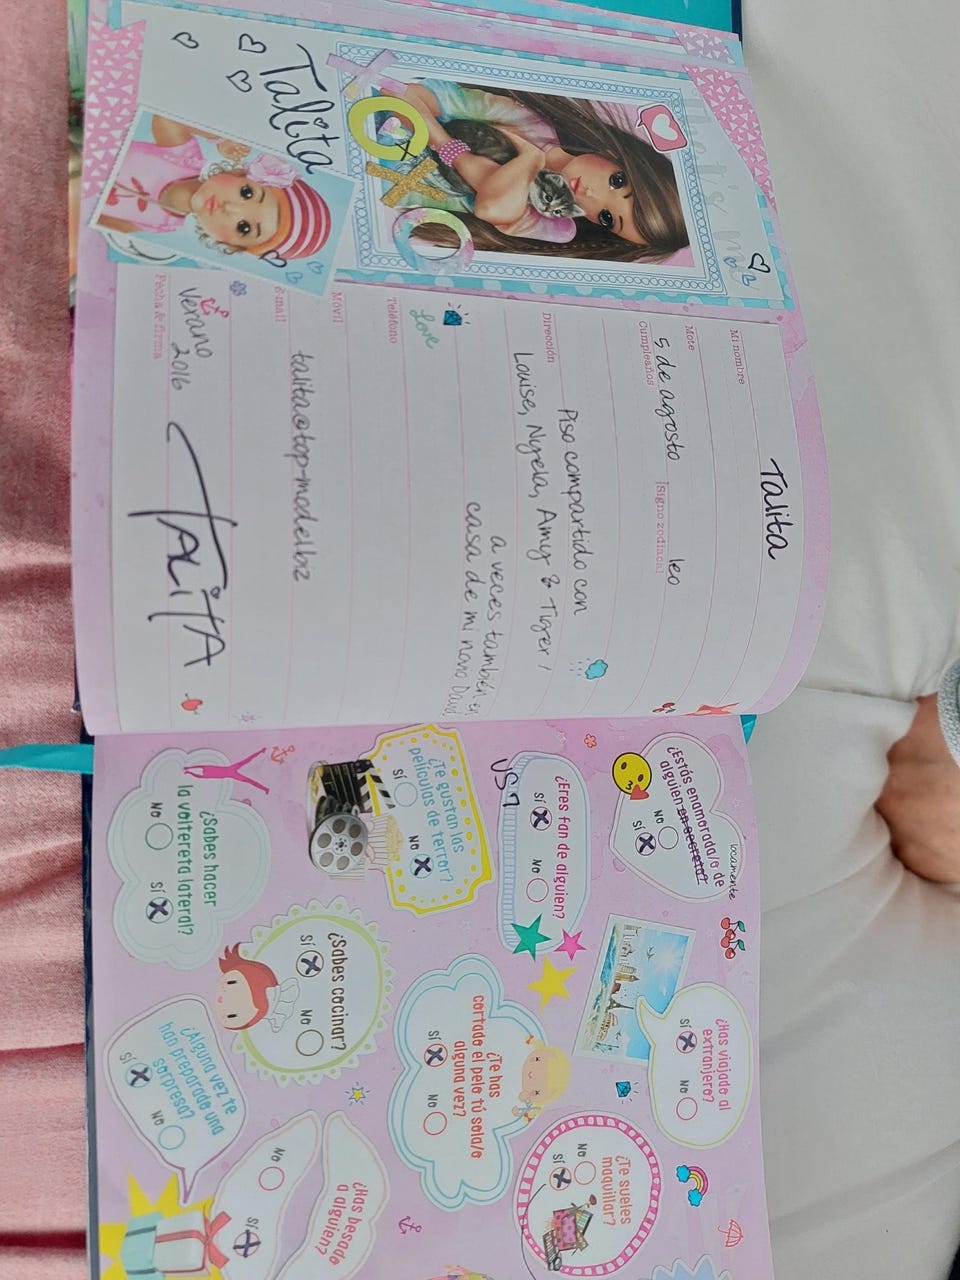 Talita
Mi nombre
Talita
Mote
Cumpleaños
5 de agosto
¡Signo zodiacal
leo
Dirección
Piso compartido con
Louise, Nyela, Amy & Tiger /
a veces también en
casa de mi novio David
Love
Teléfono
Móvil
e-mail
talita@top-model.biz
Fecha & firma
verano
2016
TALITA
¿Estás enamorada/o de
alguien en secreto?
locamente
No
Sí
¿Has viajado al
extranjero?
Sí
No
¿Eres fan de alguien?
Sí
No
¿Te sueles
maquillar?
No
Sí
¿Te gustan las
películas de terror?
Sí
No
¿Te has
cortado el pelo tú sola/o
alguna vez?
Sí
No
¿Sabes cocinar?
Sí
No
¿Has besado
a alguien?
No
Sí
¿Sabes hacer
la voltereta lateral?
No
Sí
¿Alguna vez te
han preparado una
sorpresa?
Sí
No